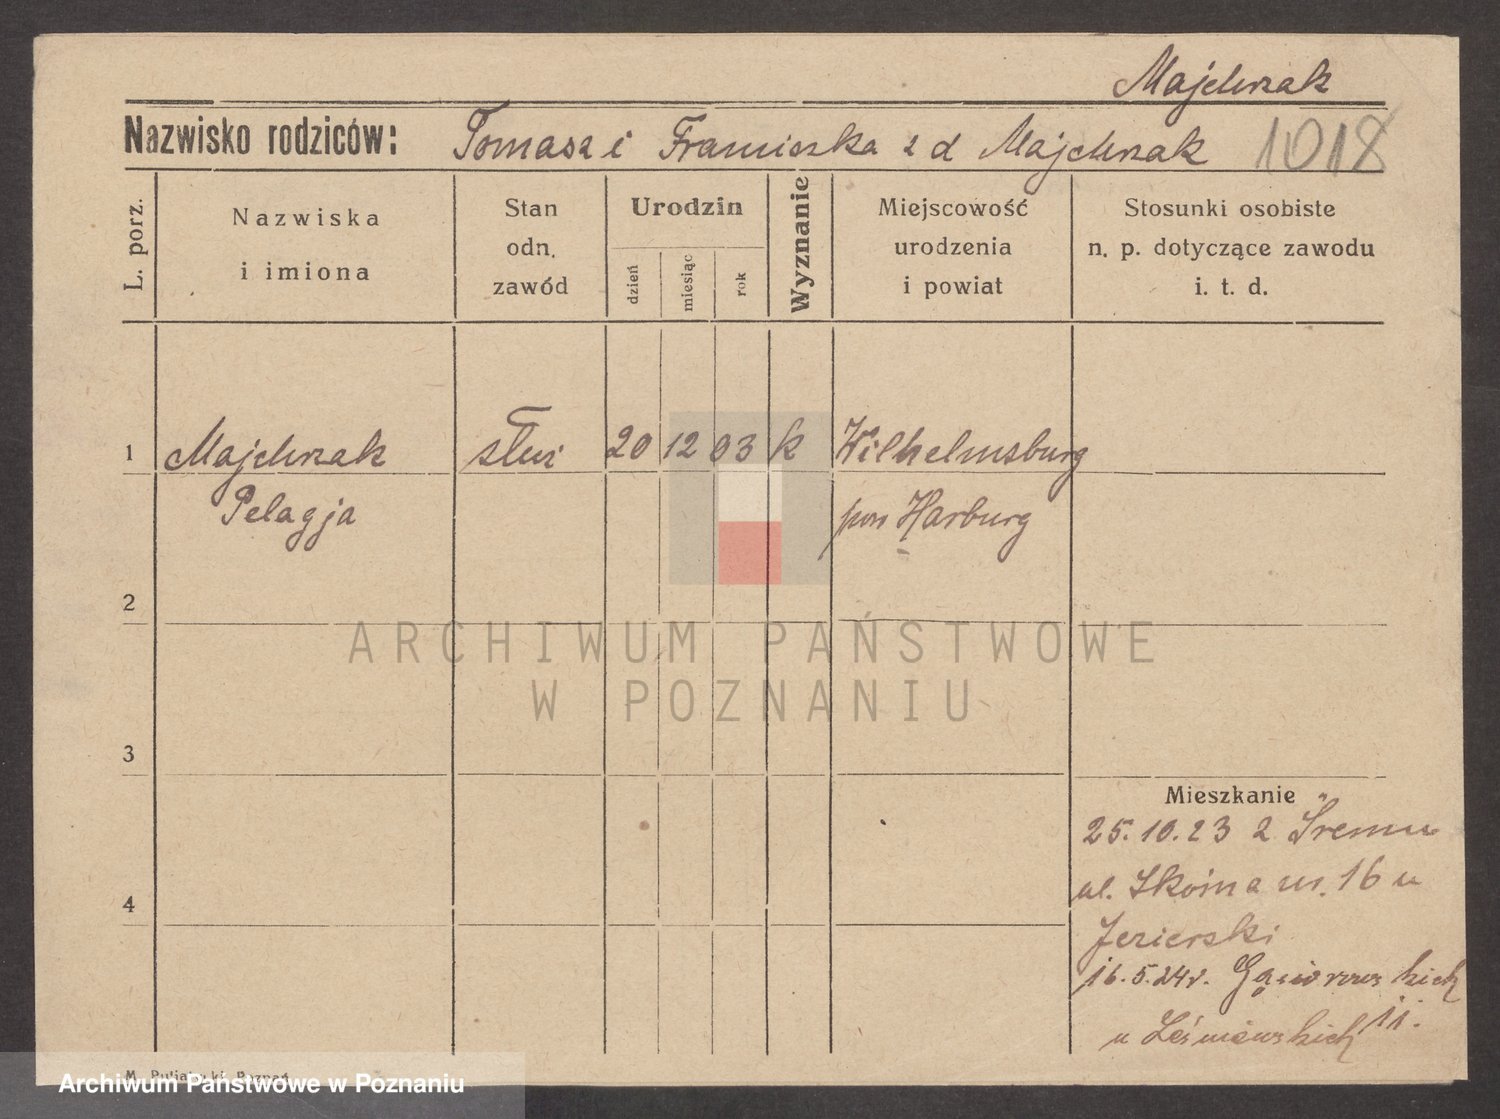 Majchrzak
Nazwisko rodziców: Tomasz i Franciszka z d Majchrzak 1018
L. porz.
Nazwiska
i imiona
Stan
odn.
zawód
Urodzin
dzień
miesiąc
rok
Wyznanie
Miejscowość
urodzenia
i powiat
Stosunki osobiste
n. p. dotyczące zawodu
i. t. d.
1 Majchrzak służ 20 12 03 k Wilhelmsburg
Pelagja pow Harburg
2
ARCHIWUM PAŃSTWOWE
W POZNANIU
3
Mieszkanie
25.10.23 z Śremu
4 ul. nr. 16 u
Jezierski
16.5.24r. Gąsiorowskich
u Leśniewskich 11.
M. Poznań
Archiwum Państwowe w Poznaniu